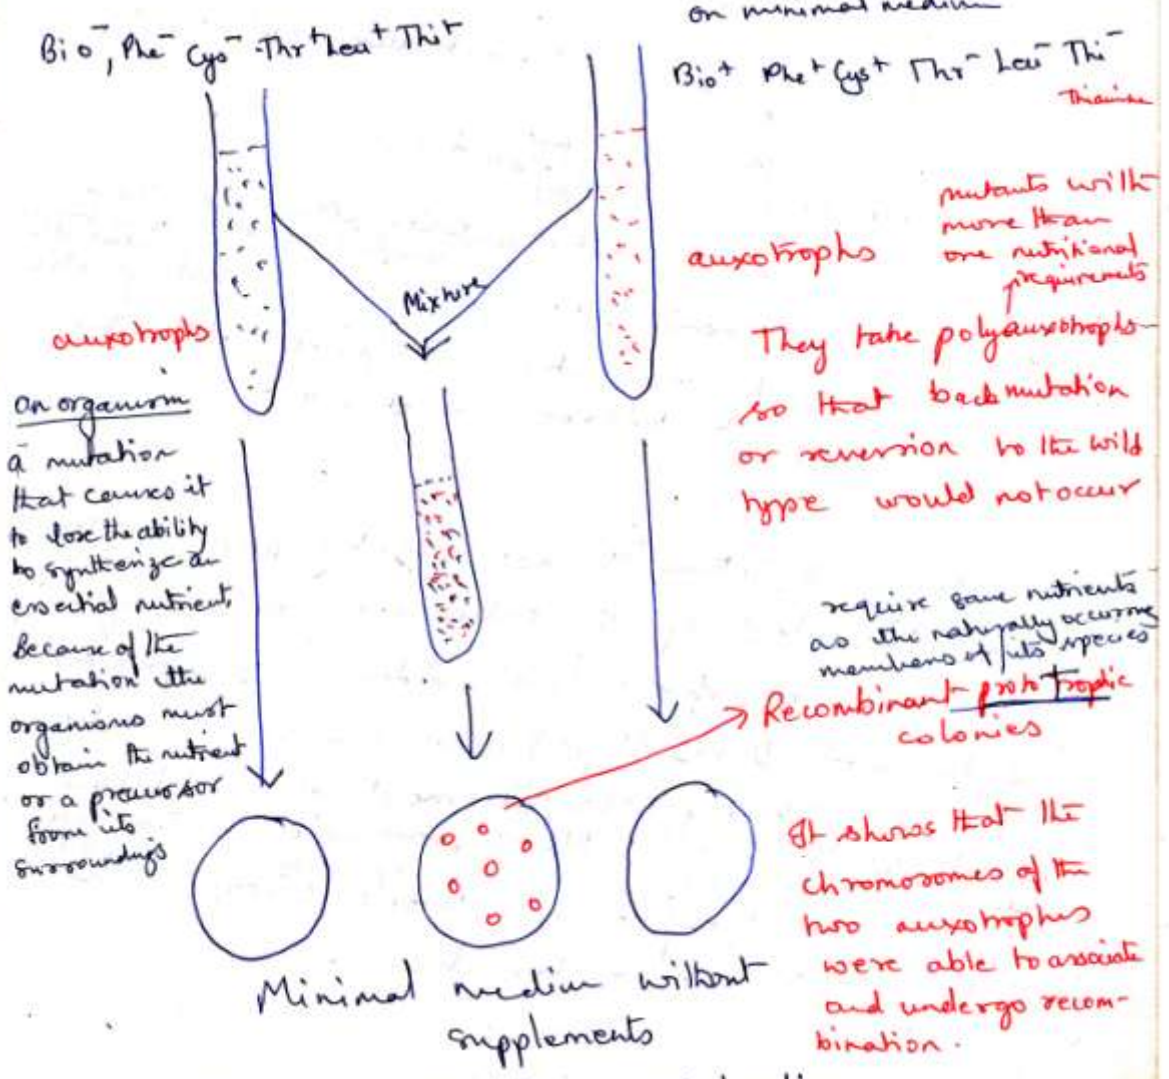 on minimal medium
Bio⁻, Phe⁻ Cys⁻ Thr⁺ Leu⁺ Thi⁺
Bio⁺ Phe⁺ Cys⁺ Thr⁻ Leu⁻ Thi⁻
Thiamine
mutants with
more than
one nutritional
requirements
auxotrophs
Mixture
auxotrophs
They take polyauxotrophs
so that backmutation
or reversion to the wild
type would not occur
an organism
a mutation
that causes it
to lose the ability
to synthesize an
essential nutrient,
Because of the
mutation the
organisms must
obtain the nutrient
or a precursor
from its
surroundings
require same nutrients
as the naturally occurring
members of its species
Recombinant prototropic
colonies
It shows that the
chromosomes of the
two auxotrophs
were able to associate
and undergo recom-
bination.
Minimal medium without
supplements